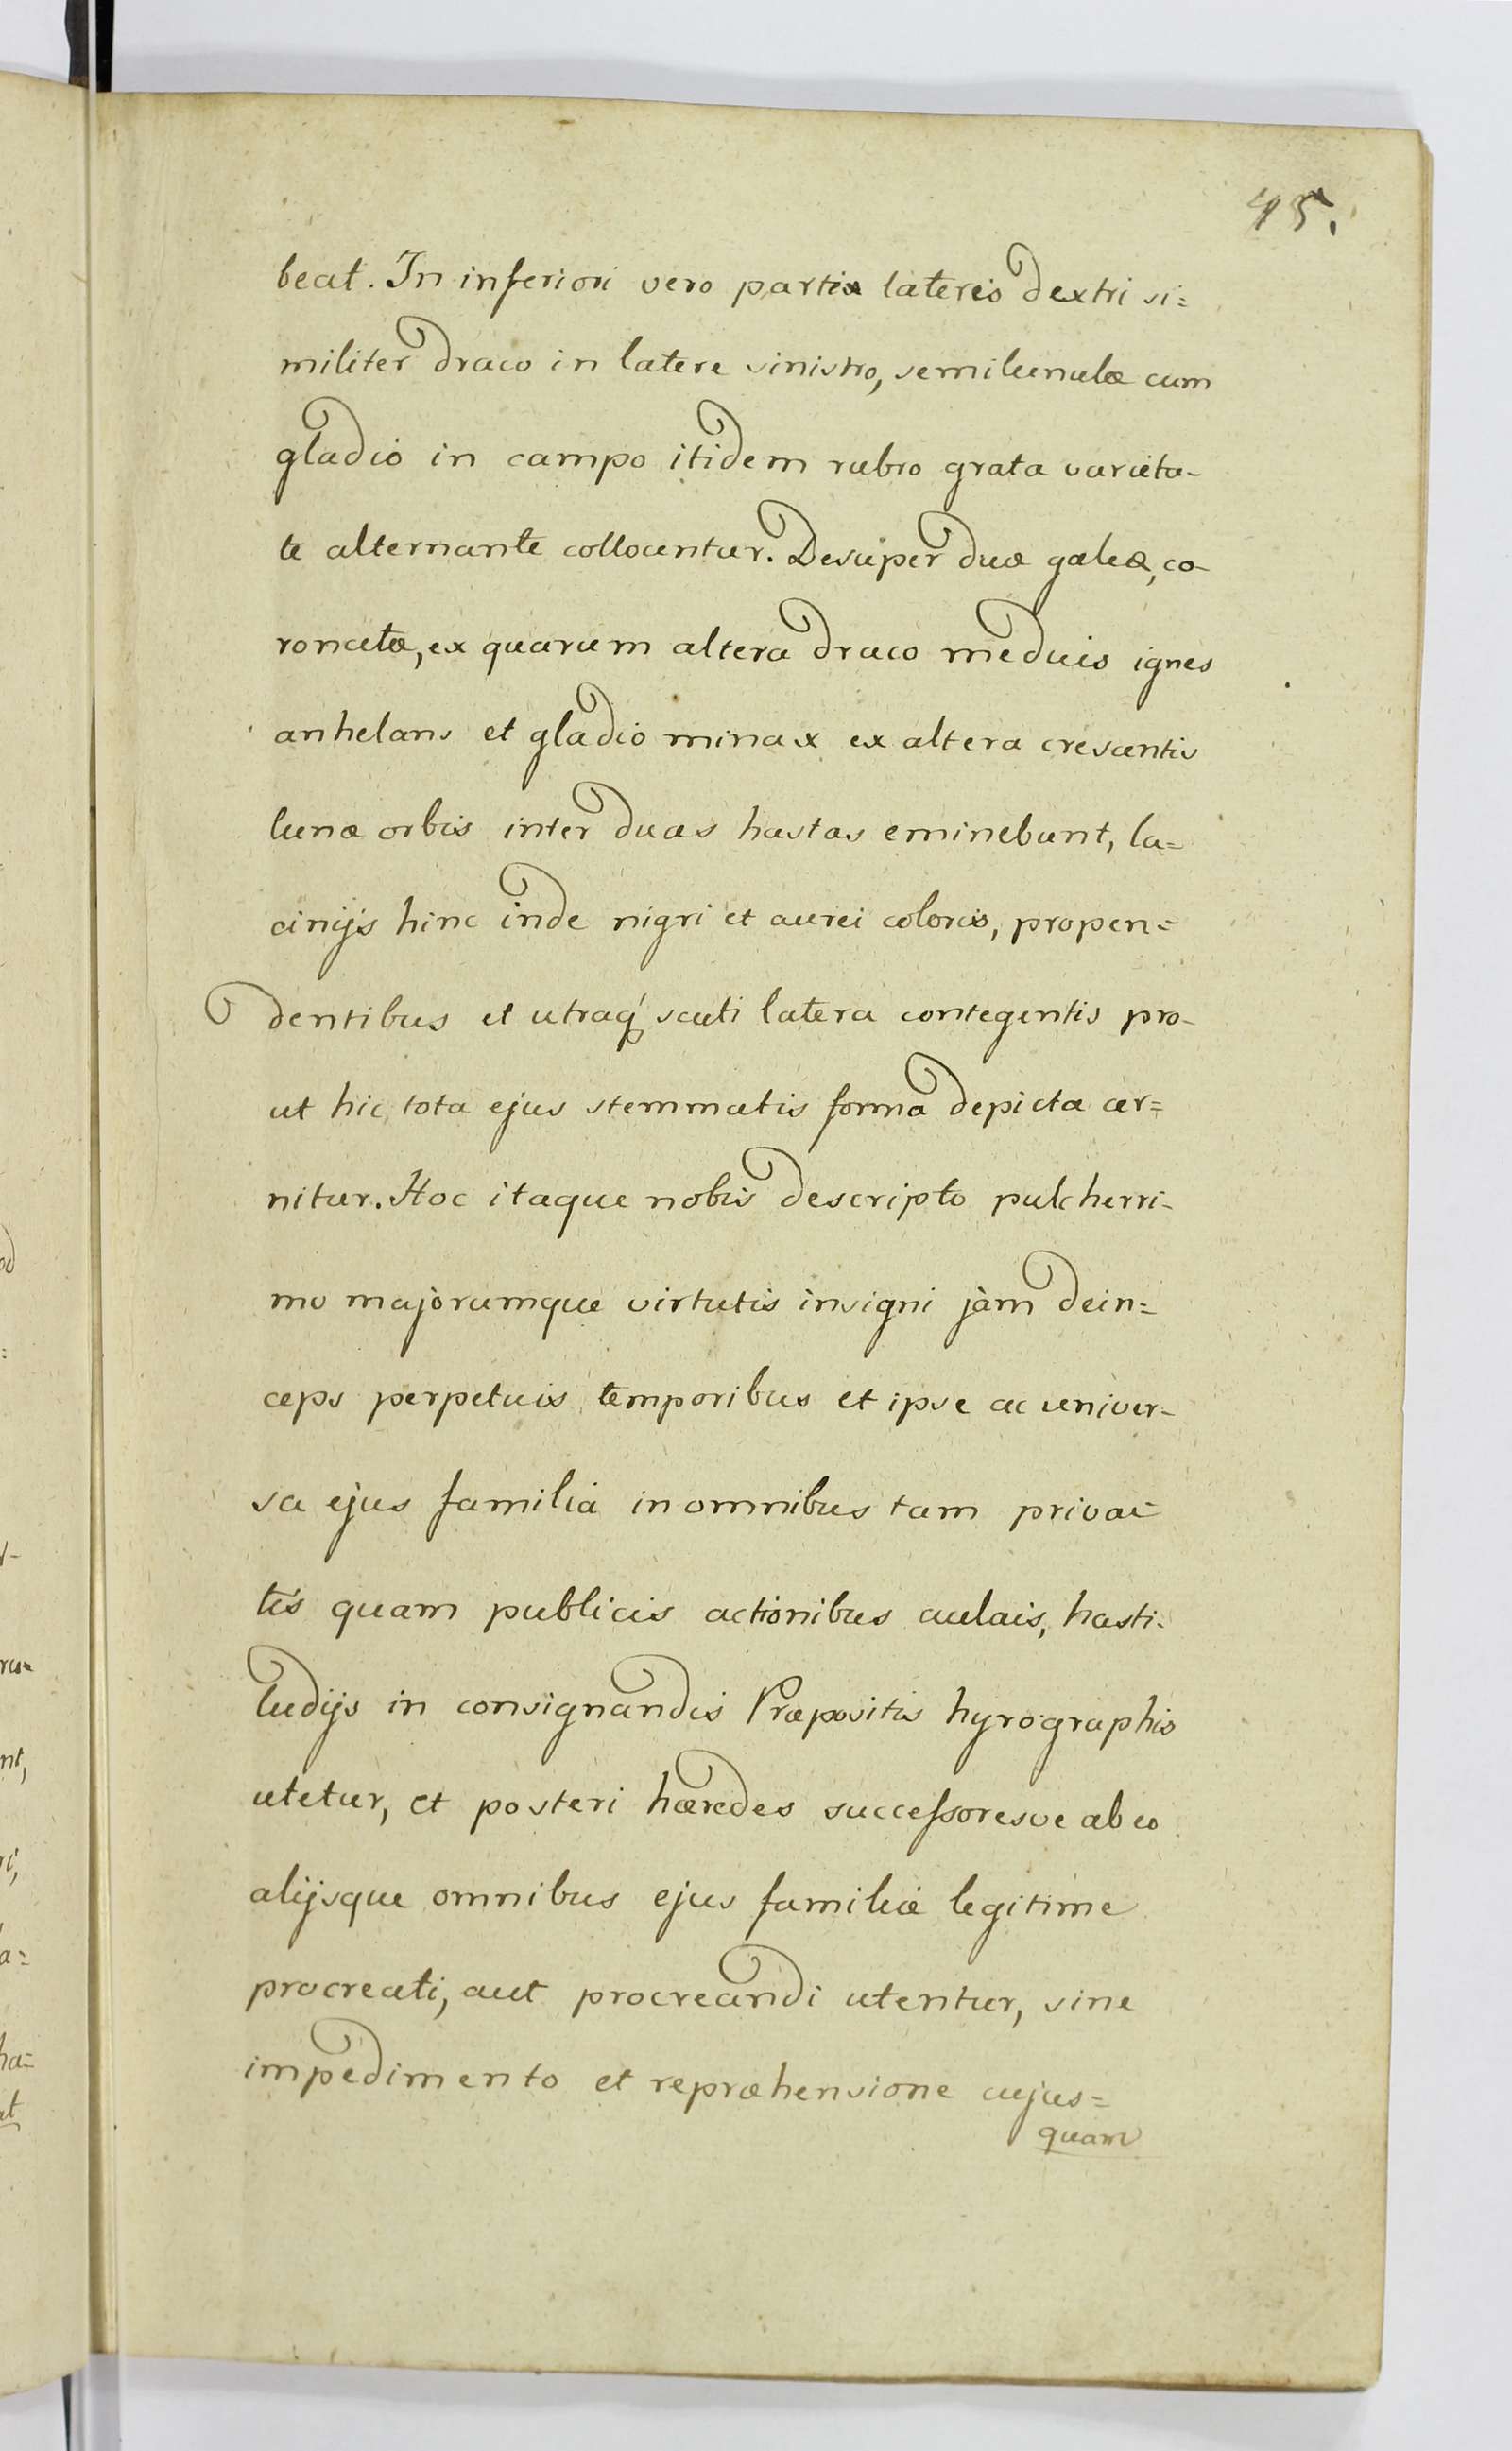 45.
beat. In inferiori vero partis lateris dextri si=
militer draco in latere sinistro, semilunulæ cum
gladio in campo itidem rubro grata varieta-
te alternante collocantur. Desuper duæ galeæ, co-
ronatæ, ex quarum altera draco meduis ignes
anhelans et gladio minax ex altera crescentis
lunæ orbis inter duas hastas eminebunt, la=
cinijs hinc inde nigri et aurei coloris, propen=
dentibus et utraq́ scuti latera contegentis pro-
ut hic tota ejus stemmatis forma depicta cer=
nitur. Hoc itaque nobis descripto pulcherri-
mo majorumque virtutis insigni jam dein=
ceps perpetuis temporibus et ipse ac univer-
sa ejus familia in omnibus tam priva=
tis quam publicis actionibus aulais, hasti-
ludijs in consignandis Præpositis hyrographis
utetur, et posteri hæredes successoresve ab eo
alijsque omnibus ejus familiæ legitime
procreati, aut procreandi utentur, sine
impedimento et repræhensione cujus=
quam